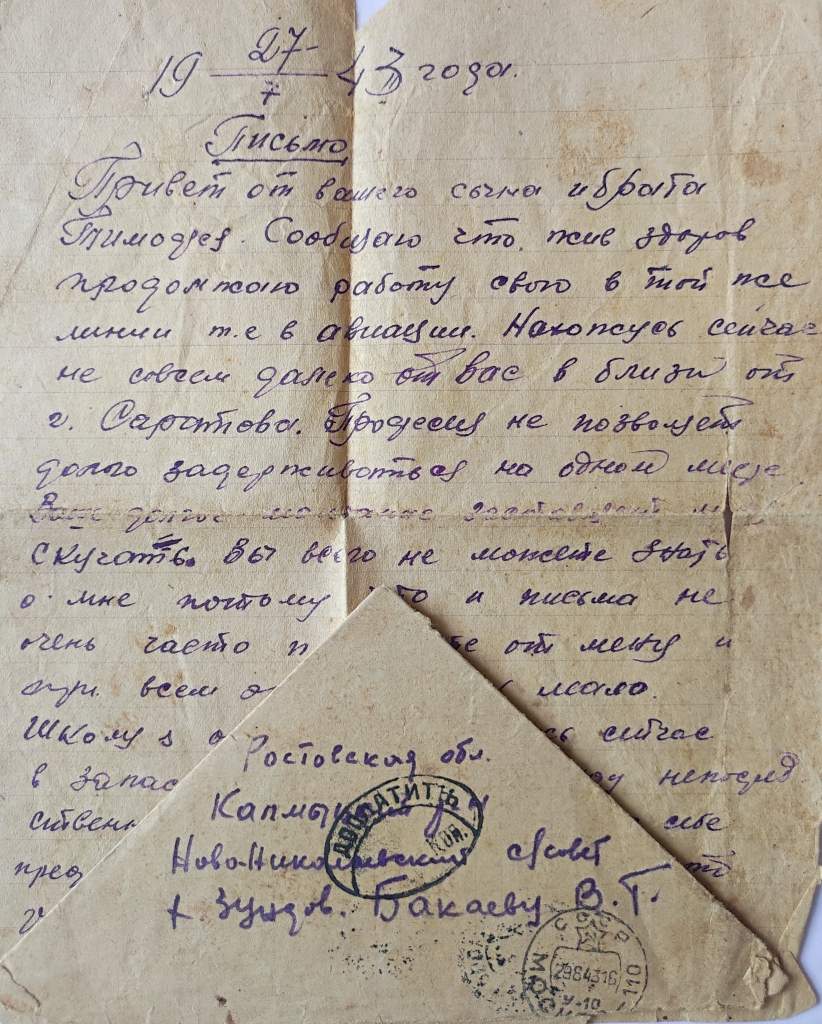 19 27/7 43 года.
Письмо
Привет от вашего сычна и брата
Тимофея. Сообщаю что жив здоров
продолжаю работу свою в той же
линии т.е в авиации. Нахожусь сейчас
не совсем далеко от вас в близи от
г. Саратова. Професия не позволяет
долго задерживаться на одном месте
Ваше долгое молчание заставляет
скучать. Вы всего не можете знать
о мне потому что и письма не
очень часто от меня и
при всем мало.
Школу я сейчас
в запас непосред
ствен себе
пред
Ростовская обл.
Калмыцкий р-н
Ново-Николаевский с/совет
х Зундов. Бакаеву В.Г.
ДОПЛАТИТЬ
КОП.
СССР
МОС
110